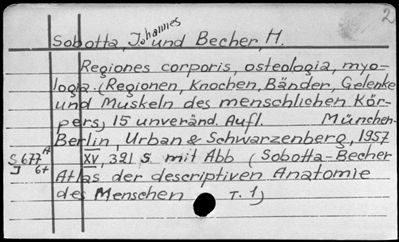 2
Sobotta, Johannes und Becher, H.
Regiones corporis, osteologia, myo-
logia. (Regionen, Knochen, Bänder, Gelenke
und Muskeln des menschlichen Kör-
pers) 15 unveränd. Aufl. München-
Berlin, Urban & Schwarzenberg, 1957
S 677 A XV, 321 S mit Abb (Sobotta-Becher
J 6+ Atlas der descriptiven Anatomie
des Menschen T. 1)